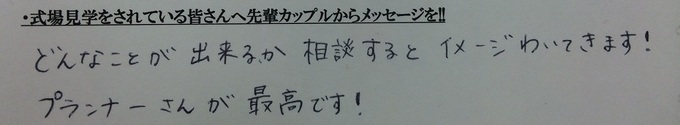 ・式場見学をされている皆さんへ先輩カップルからメッセージを!!
どんなことが出来るか 相談すると イメージわいてきます!
プランナーさんが 最高です!